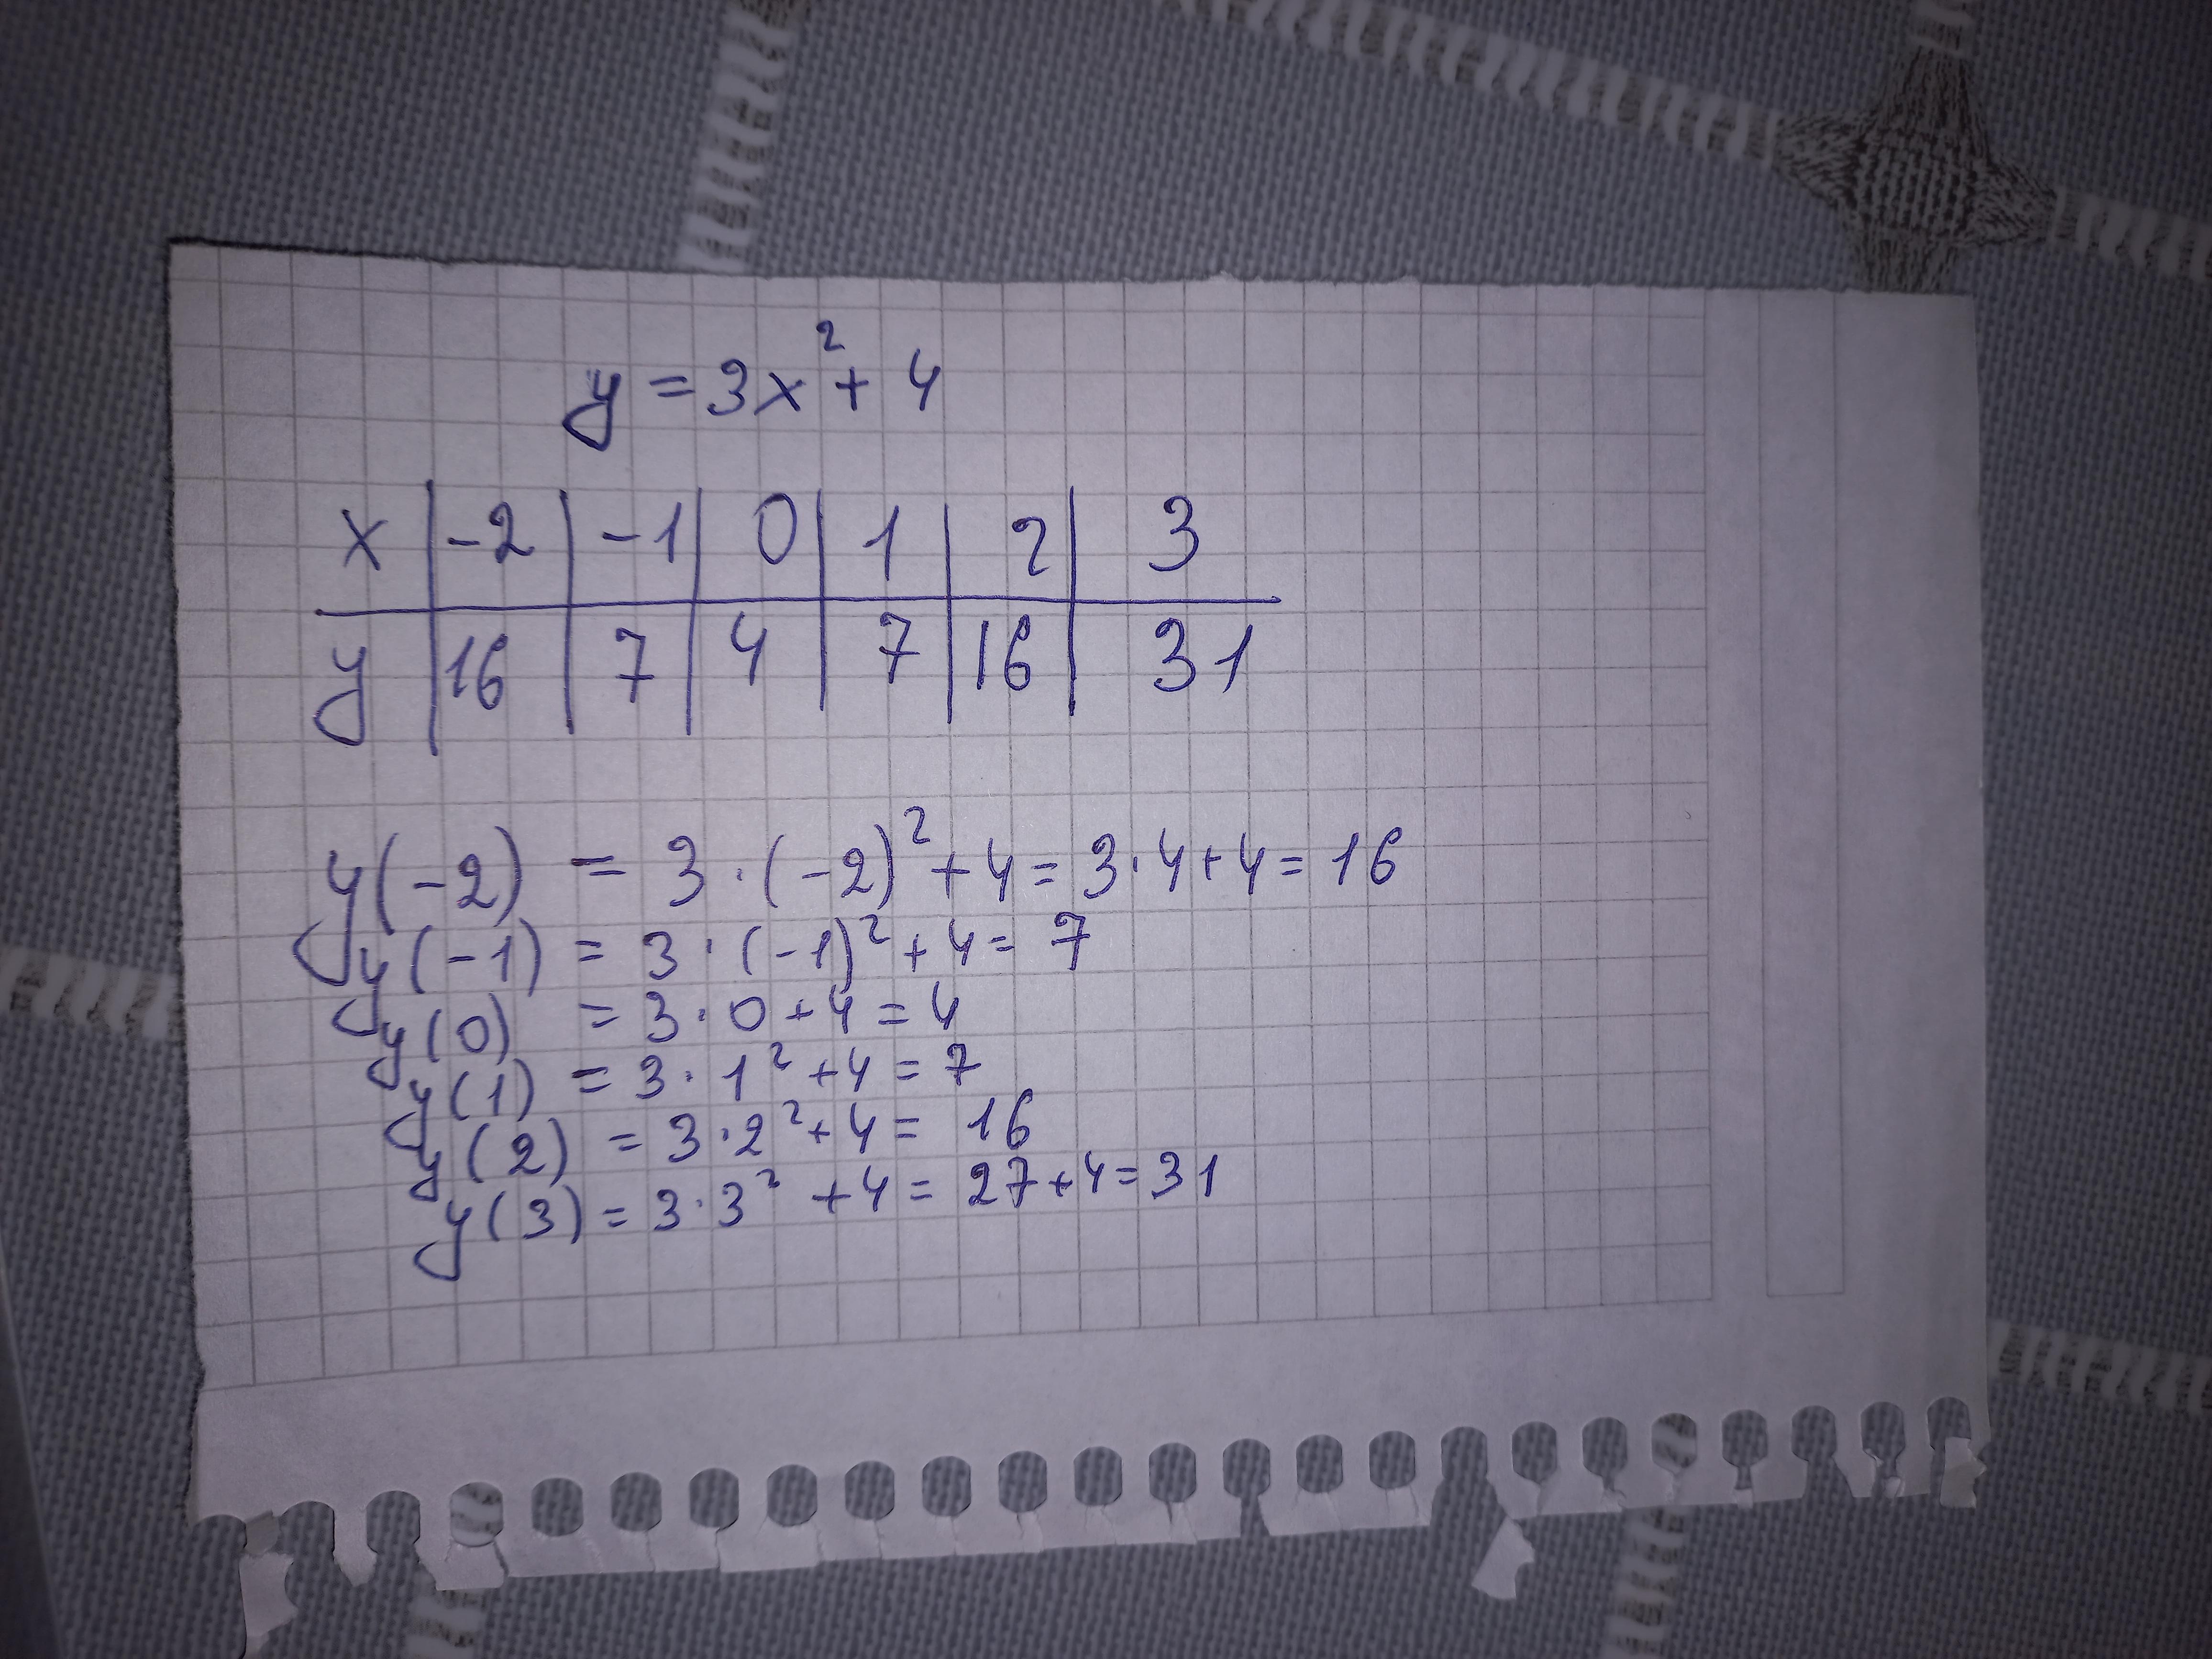 y = 3x² + 4
x | -2 | -1 | 0 | 1 | 2 | 3
y | 16 | 7 | 4 | 7 | 16 | 31
y(-2) = 3·(-2)² + 4 = 3·4+4 = 16
y(-1) = 3·(-1)² + 4 = 7
y(0) = 3·0+4 = 4
y(1) = 3·1² +4 = 7
y(2) = 3·2² +4 = 16
y(3) = 3·3² +4 = 27+4 = 31